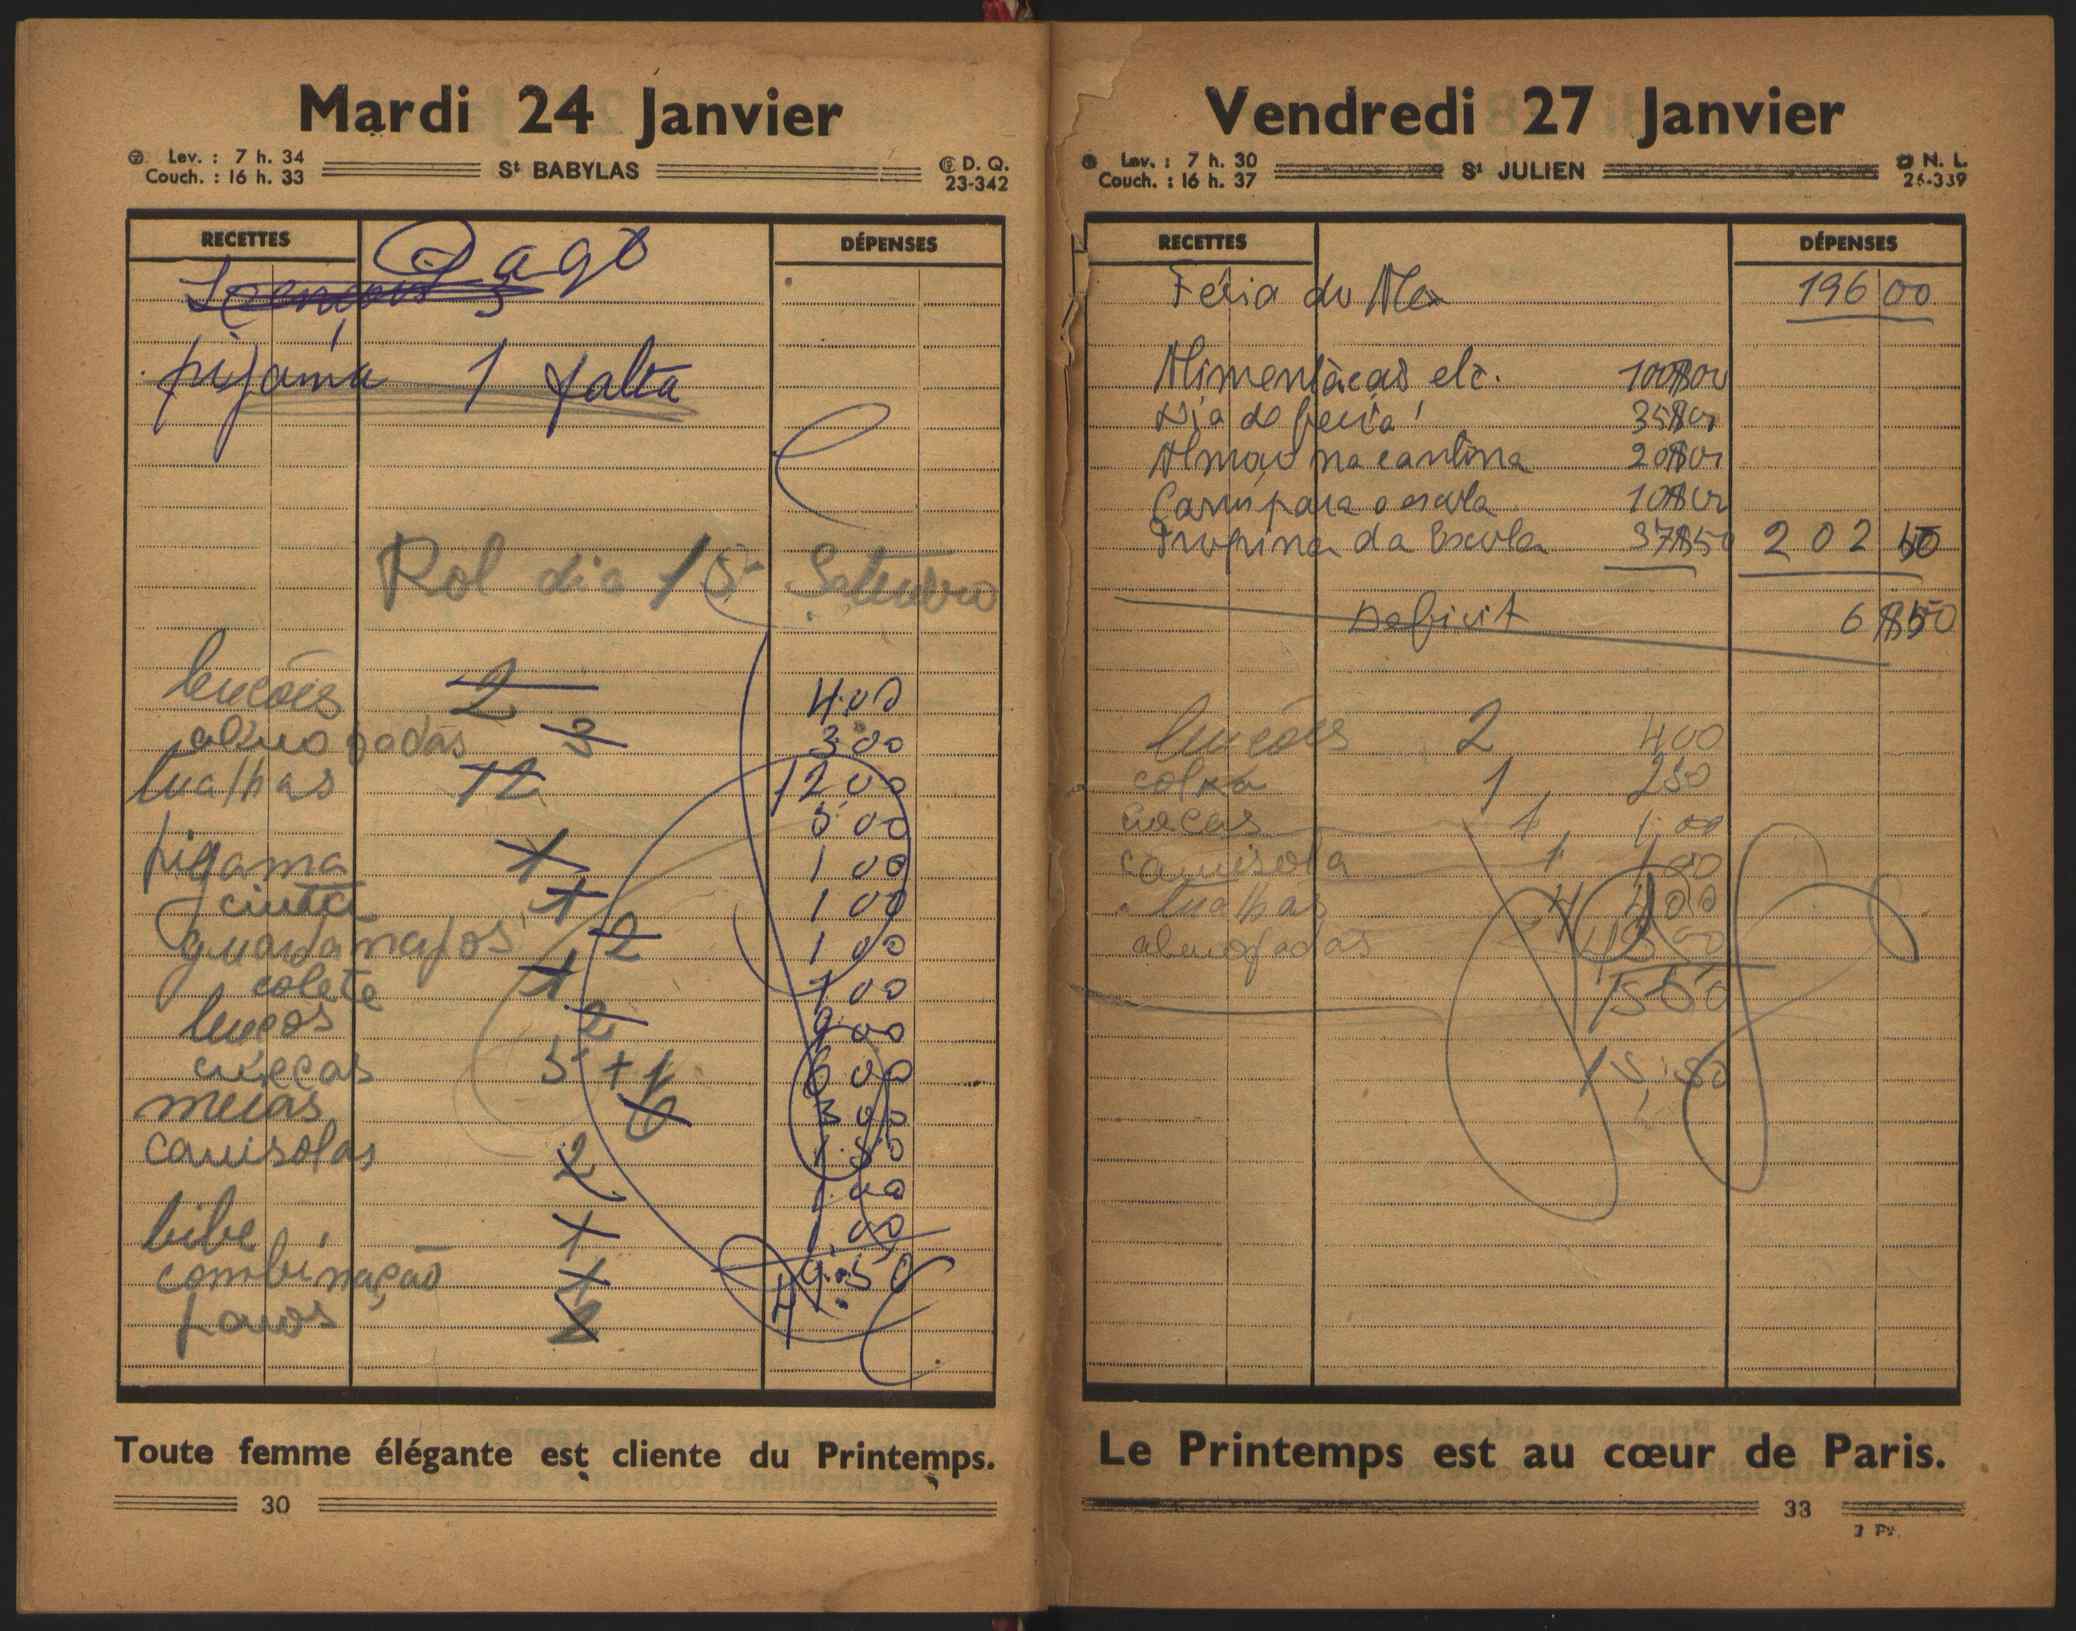 Mardi 24 Janvier
Lev. : 7 h. 34
Couch. : 16 h. 33
St BABYLAS
D. Q.
23-342
RECETTES
DÉPENSES
Pago
Lençois 3
pijáma 1 falta
Rol dia 15 Setembro
lençóis 2 4.00
almofadas 3 3.00
tualhas 12 12 00
5 00
pigama 1 1 00
cinta 1 1 00
guardanapos 2 1 00
colete 1 1 00
lenços 2
cuecas 5+1 6 00
meias 6 3 00
camisolas 2 1.50
1.00
bibe 1 1,00
combinação 1
panos 2
Toute femme élégante est cliente du Printemps.
30
Vendredi 27 Janvier
Lev. : 7 h. 30
Couch. : 16 h. 37
St JULIEN
N. L.
26-339
RECETTES
DÉPENSES
Féria do Alex 196 00
Alimentação etc. 100$00
Dia de feria 35$00
Almoço na cantina 20$00
Carro para a escola 10$00
Propina da Escola 37$50 202 50
Deficit 6$50
lençóis 2 4 00
colxa 1 2 50
cuecas 1 1,00
camisola 1 1 00
tualhas 4 4 00
almofadas
15 50
15.50
Le Printemps est au cœur de Paris.
33
3 Pr.